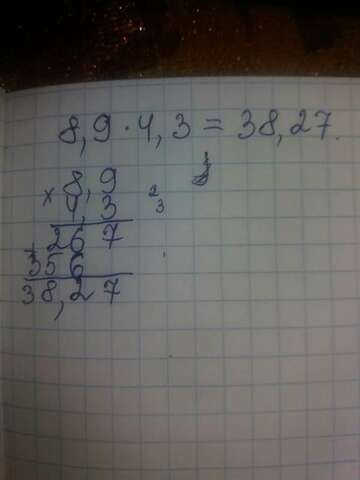 8,9 · 4,3 = 38,27.
× 8,9
4,3
2
3
267
356
38,27